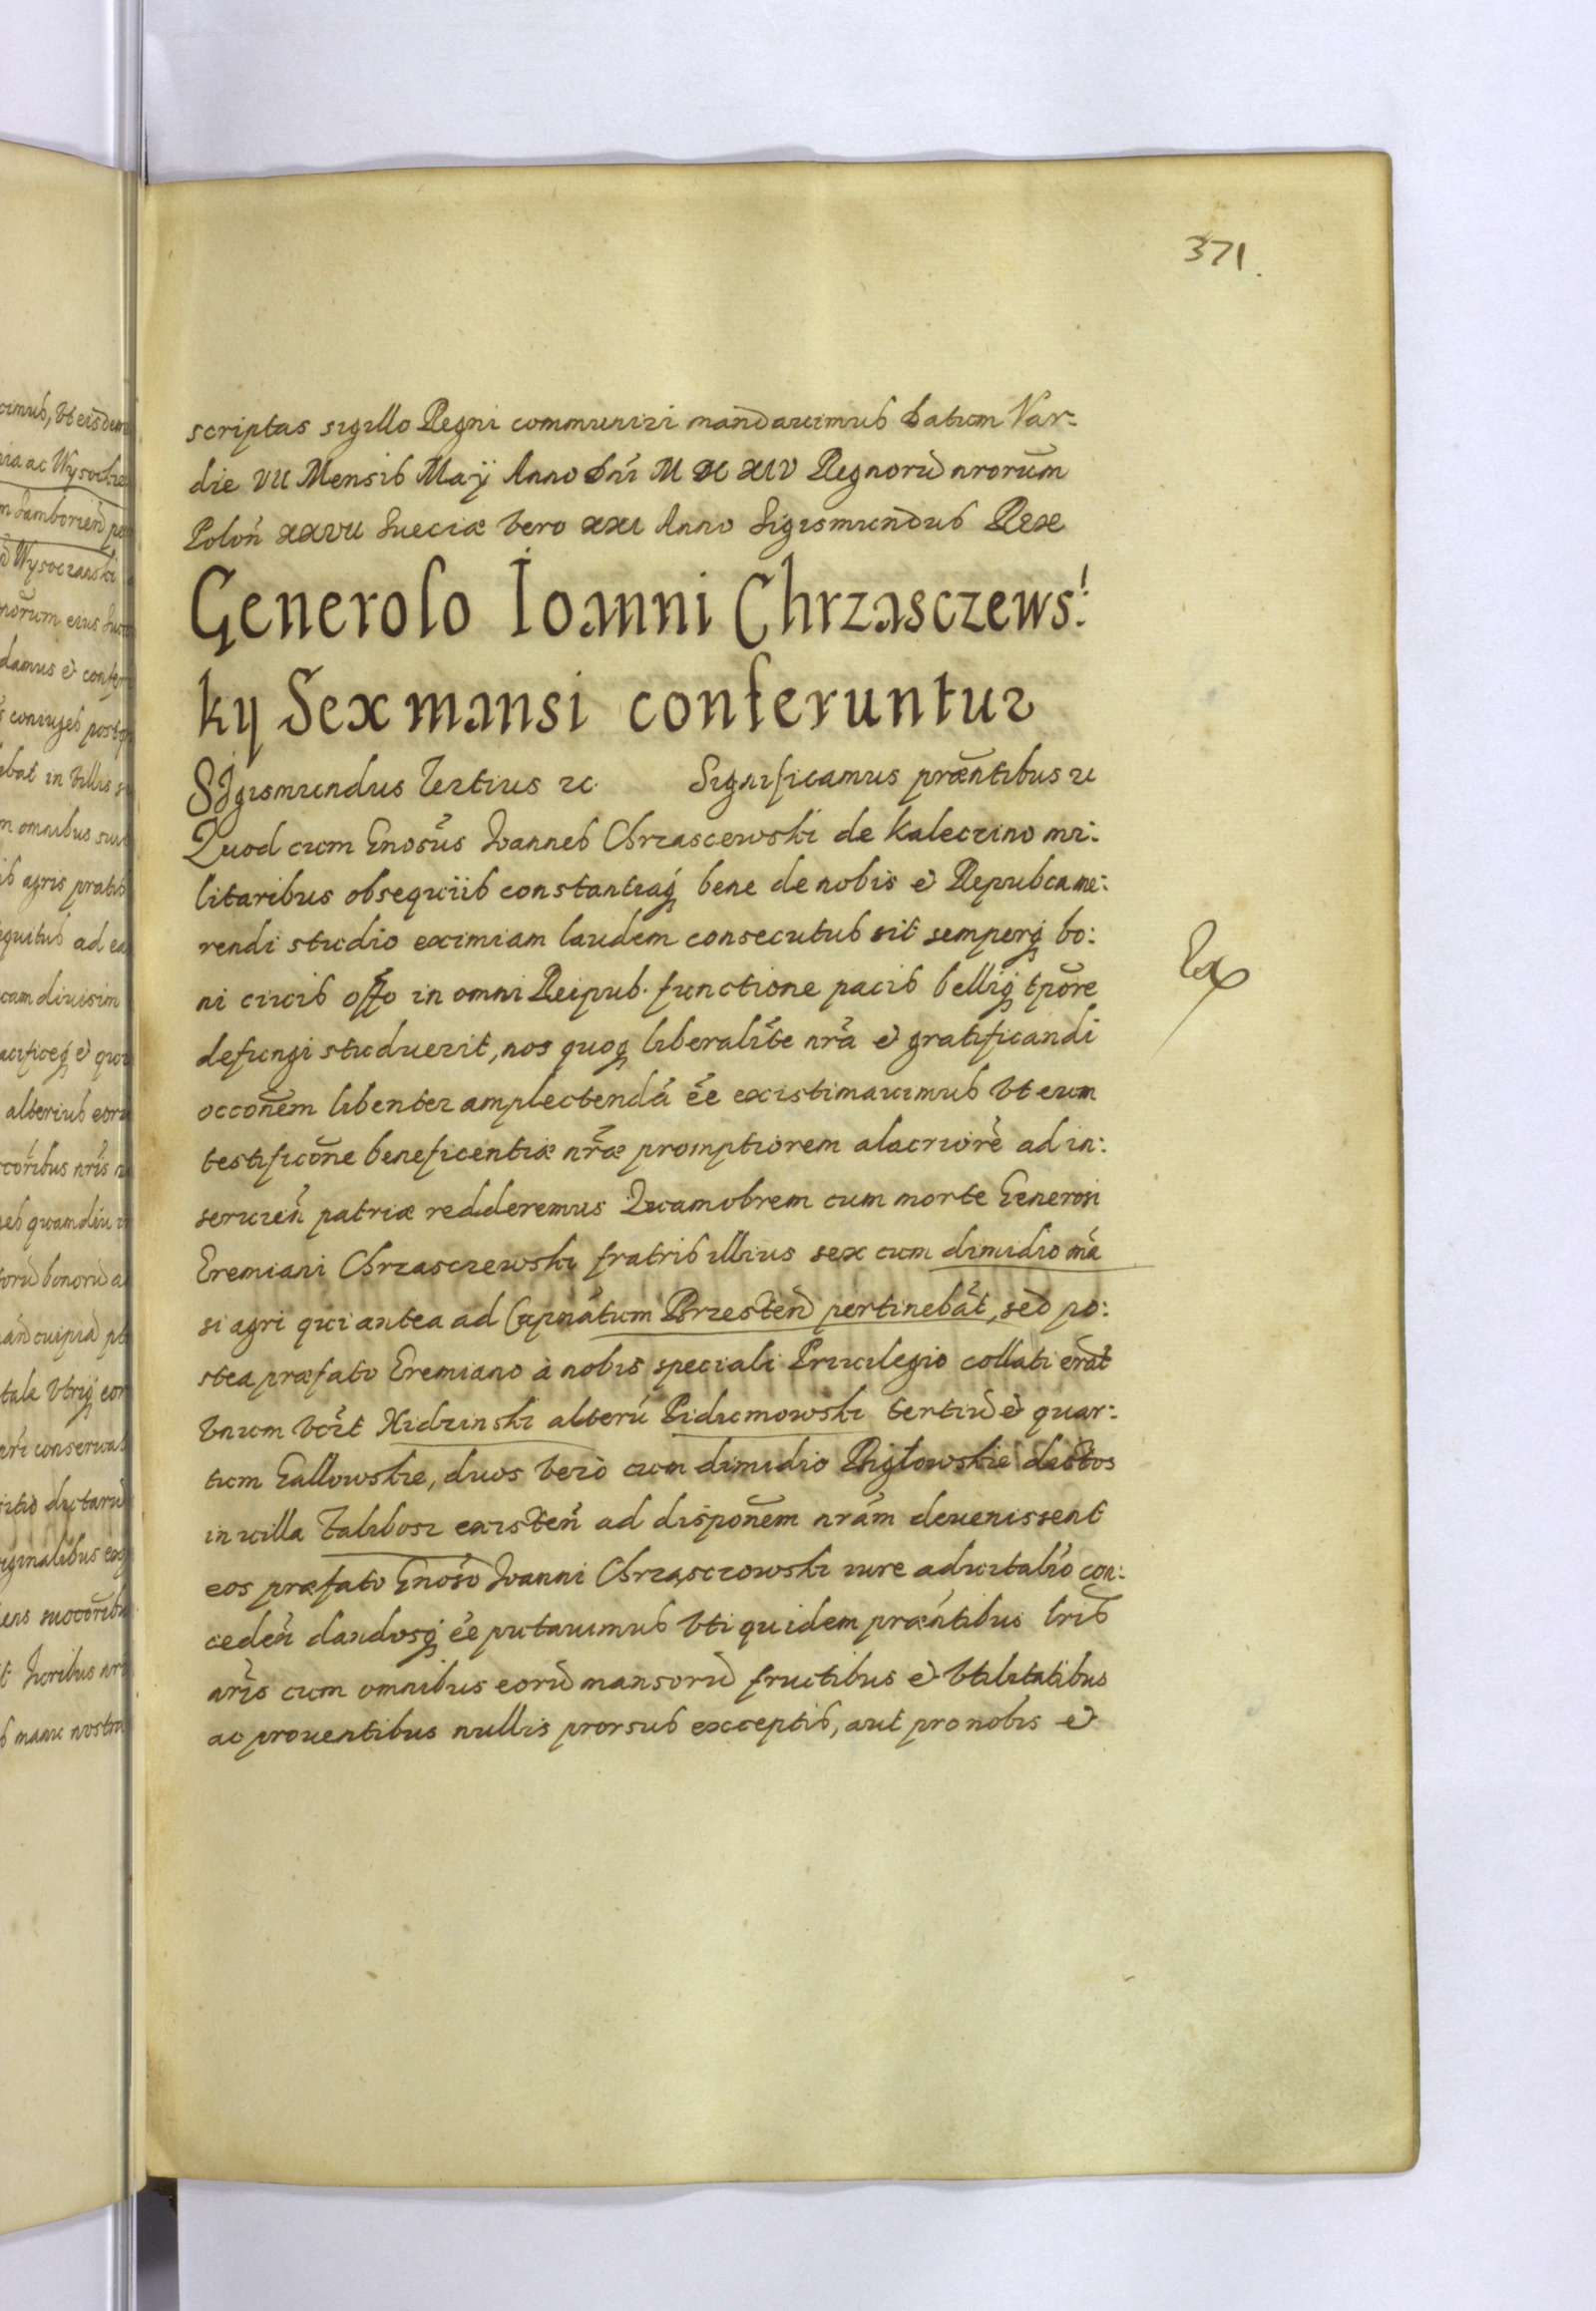 371.
scriptas sigillo Regni communiri mandauimus Datum Var-
die VII Mensis Maÿ Anno Dni M DC XIV Regnorũ nrorum
Polon XXVII Sueciæ vero XXI Anno Sigismundus Rex
Generoso Ioanni Chrzasczews:
ky Sex mansi conferuntur
SIgismundus Tertius zc. Significamus præntibus zc
Quod cum Gnosus Ioannes Chrzascewski de Kaleczino mi:
litaribus obsequiis constantiaq bene de nobis et Repubca me:
rendi studio eximiam laudem consecutus sit semperq bo:
ni ciuis offo in omni Reipub. functione pacis belliq tpore
defungi studuerit, nos quoq liberalite nra et gratificandi
occonem libenter amplectendã ẽe existimauimus vt eum
testificone beneficentiæ nræ promptiorem alacriorẽ ad in:
seruien patriæ redderemus Quamobrem cum morte Generosi
Eremiani Chrzasczewski fratris illius sex cum dimidio mã
si agri qui antea ad Capnatum Brzesten pertinebãt, sed po:
stea præfato Eremiano à nobis speciali Priuilegio collati erãt
vnum vczt Nidzinski alterũ Pidumowski tertiũ et quar:
tum Gallowskie, duos verò cum dimidio Piglowskie dictos
in villa Talibosz existen ad disponem nram deuenissent
eos præfato Gnoso Ioanni Chrząsczowski iure aduitalio con:
ceden dandosq ẽe putauimus vti quidem præntibus lris
nris cum omnibus eorũ mansorũ fructibus et vtilitatibus
ac prouentibus nullis prorsus exceptis, aut pro nobis et